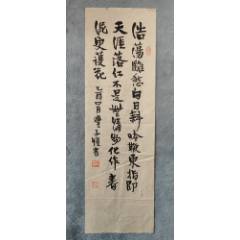 浩蕩離愁白日斜吟鞭東指即
天涯落红不是無情物化作春
泥更護花 乙酉四月豐子愷書